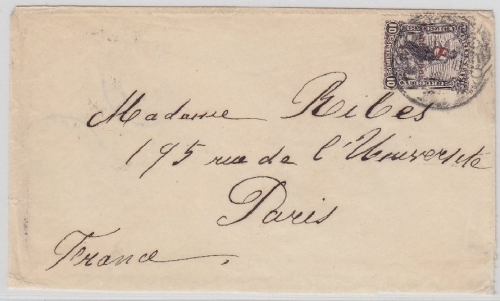 Madame Ribes
195 rue de l'Université
Paris
France
10 10